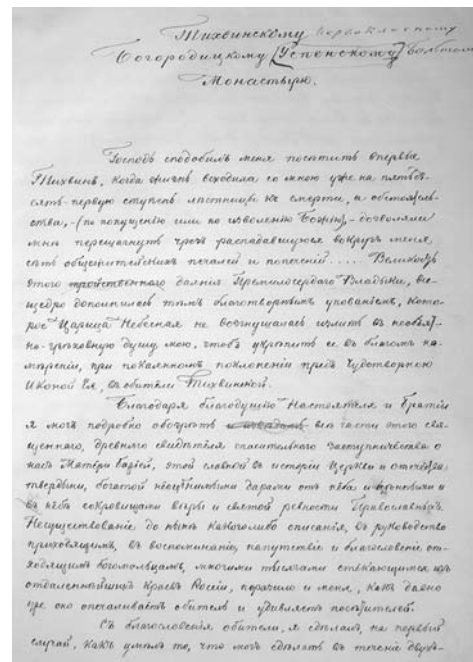 Тихвинскому первоклассному
Богородицкому (Успенскому) больш.
Монастырю.
Господь сподобилъ меня посѣтить впервые
Тихвинъ, когда жизнь всходила со мною уже на пятьде-
сятъ-первую ступень лѣстницы къ смерти, и обстоятель-
ства, - (по попущенію или по изволенію Божію), - дозволили
мнѣ перешагнуть чрезъ распадавшуюся вокругъ меня,
сѣть общежитейскихъ печалей и попеченій..... Великость
этого даянія Премилосердаго Владыки, все-
щедро дополнилась тѣмъ благотворнымъ упованіемъ, кото-
рое Царица Небесная не возгнушалась излить въ необъят-
но-грѣховную душу мою, чтобъ укрѣпить ее въ благомъ на-
мѣреніи, при поклоненіи предъ Чудотворною
Иконой Ея, въ обители Тихвинской.
Благодаря благодушію Настоятеля и братіи
я могъ подробно обозрѣть всѣ части этого свя-
щеннаго, древняго свидѣтеля спасительнаго заступничества о
насъ Матери Божіей, этой славной въ исторіи Церкви и отечества
твердыни, богатой неоцѣнимыми дарами отъ неба и
въ небѣ сокровищами вѣры и святой ревности Православныхъ.
Несуществованіе до нынѣ какого либо описанія, въ руководство
приходящимъ, въ воспоминаніе, напутствіе и благословеніе от-
ходящимъ богомольцамъ, многими тысячами стекающимся изъ
отдаленнѣйшихъ краевъ Росіи, поразило и меня, какъ давно
уже оно опечаливаетъ обитель и удивляетъ посѣтителей.
Съ благословенія обители, я сдѣлалъ, на первый
случай, какъ умѣлъ то, что могъ сдѣлать въ теченіе двухъ-